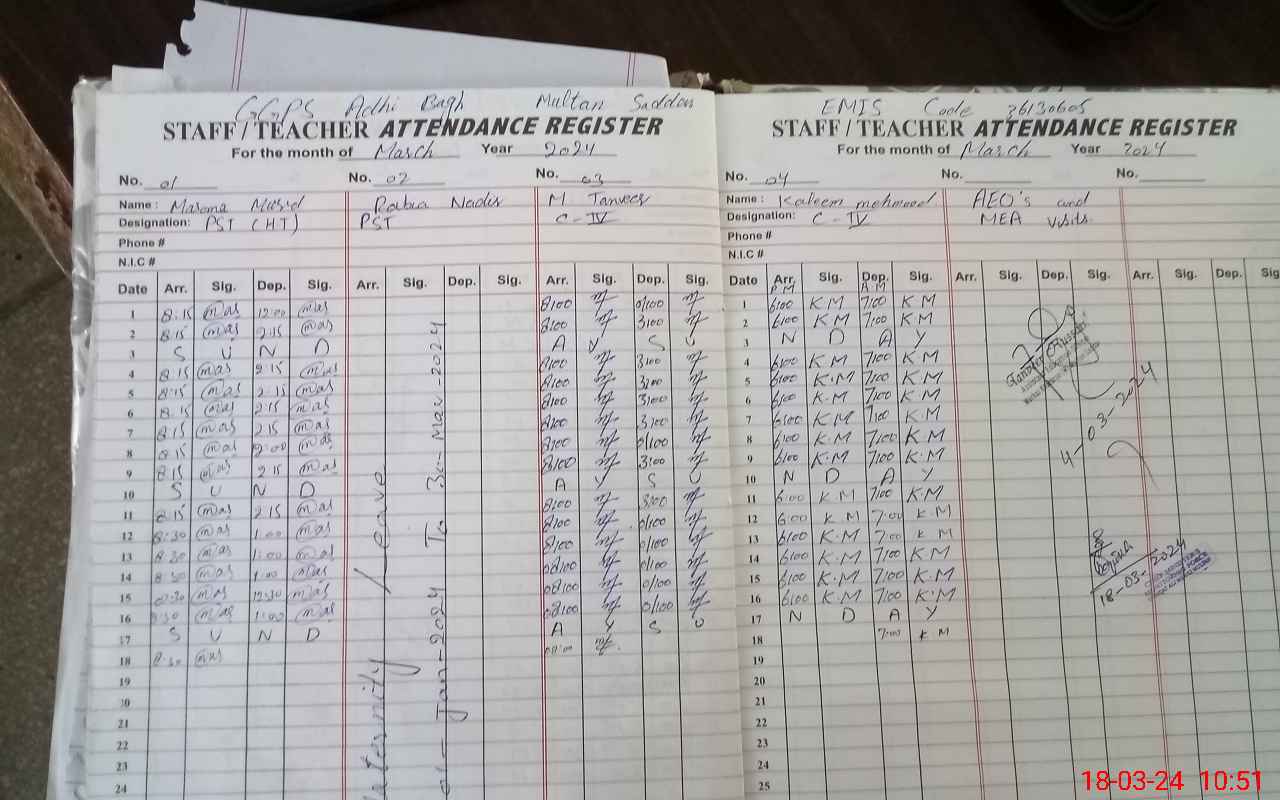 GGPS Adhi Bagh Multan Saddar
STAFF / TEACHER ATTENDANCE REGISTER
For the month of March Year 2024
No. 01 No. 02 No. 03
Name: Rabia Nadir M Tanveer
Designation: PST (HT) PST C-IV
Phone #
N.I.C #
Date Arr. Sig. Dep. Sig. Arr. Sig. Dep. Sig. Arr. Sig. Dep. Sig.
1 8:15 mas 12:00 mas 8:00 01:00
2 8:15 mas 2:15 mas 8:00 3:00
3 S U N D
4 8:15 mas 2:15 mas 8:00 3:00
5 8:15 mas 2:15 mas 8:00 3:00
6 8:15 mas 2:15 mas 8:00 3:00
7 8:15 mas 2:15 mas 8:00 3:00
8 8:15 mas 12:00 mas 8:00 01:00
9 8:15 mas 2:15 mas 8:00 3:00
10 S U N D A Y S
11 8:15 mas 2:15 mas 8:00 3:00
12 8:30 mas 1:00 mas 8:00 01:00
13 8:30 mas 1:00 mas 8:00 01:00
14 8:30 mas 1:00 mas 08:00 01:00
15 08:30 mas 12:30 mas 08:00 01:00
16 8:30 mas 1:00 mas 08:00 01:00
17 S U N D A Y S
18 8:30 mas 08:00
19
20
21
22
23
24
Maternity Leave
01-Jan-2024 To 30-Mar-2024
EMIS Code 36130605
STAFF / TEACHER ATTENDANCE REGISTER
For the month of March Year 2024
No. 04 No. No.
Name: Kaleem mehmood AEO's and
Designation: C-IV MEA visits
Phone #
N.I.C #
Date Arr. Sig. Dep. Sig. Arr. Sig. Dep. Sig. Arr. Sig. Dep. Sig
P.M A.M
1 6:00 K.M 7:00 K.M
2 6:00 K.M 7:00 K.M
3 N D A Y
4 6:00 K.M 7:00 K.M
5 6:00 K.M 7:00 K.M
6 6:00 K.M 7:00 K.M
7 6:00 K.M 7:00 K.M
8 6:00 K.M 7:00 K.M
9 6:00 K.M 7:00 K.M
10 N D A Y
11 6:00 K.M 7:00 K.M
12 6:00 K.M 7:00 K.M
13 6:00 K.M 7:00 K.M
14 6:00 K.M 7:00 K.M
15 6:00 K.M 7:00 K.M
16 6:00 K.M 7:00 K.M
17 N D A Y
18 7:00 K.M
19
20
21
22
23
24
25
4-03-2024
18-03-2024
18-03-24 10:51